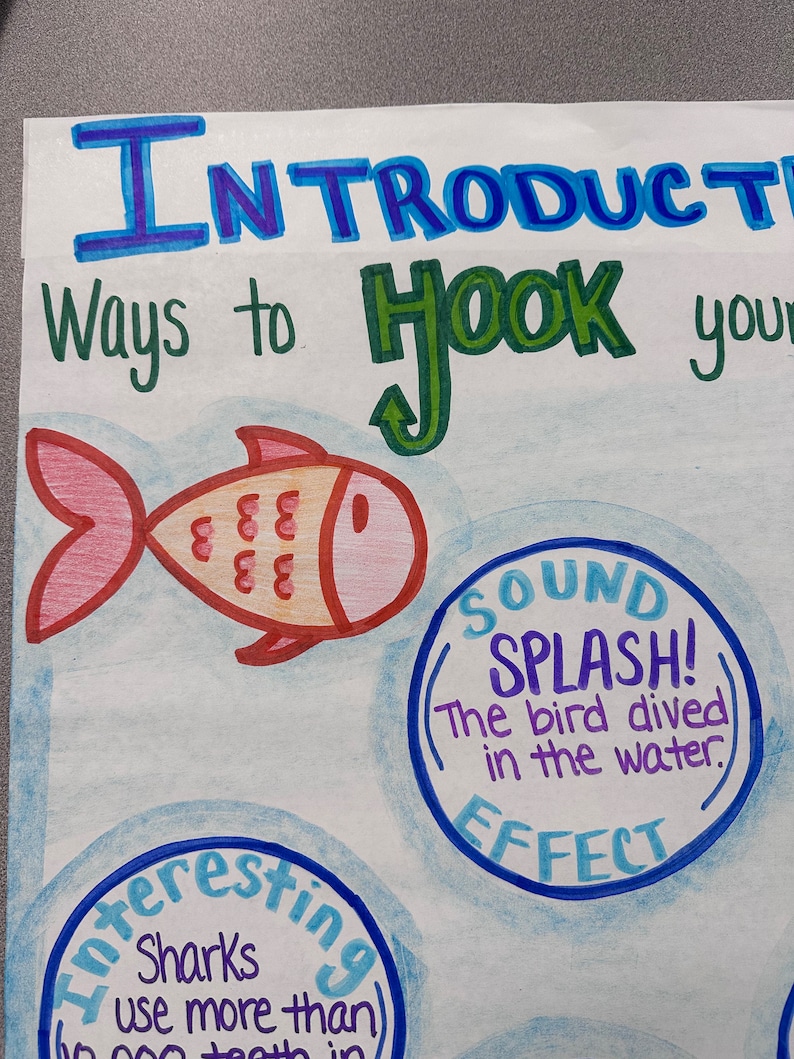 INTRODUCTI
Ways to HOOK your
SOUND
SPLASH!
The bird dived
in the water.
EFFECT
Interesting
Sharks
use more than
10,000 teeth in